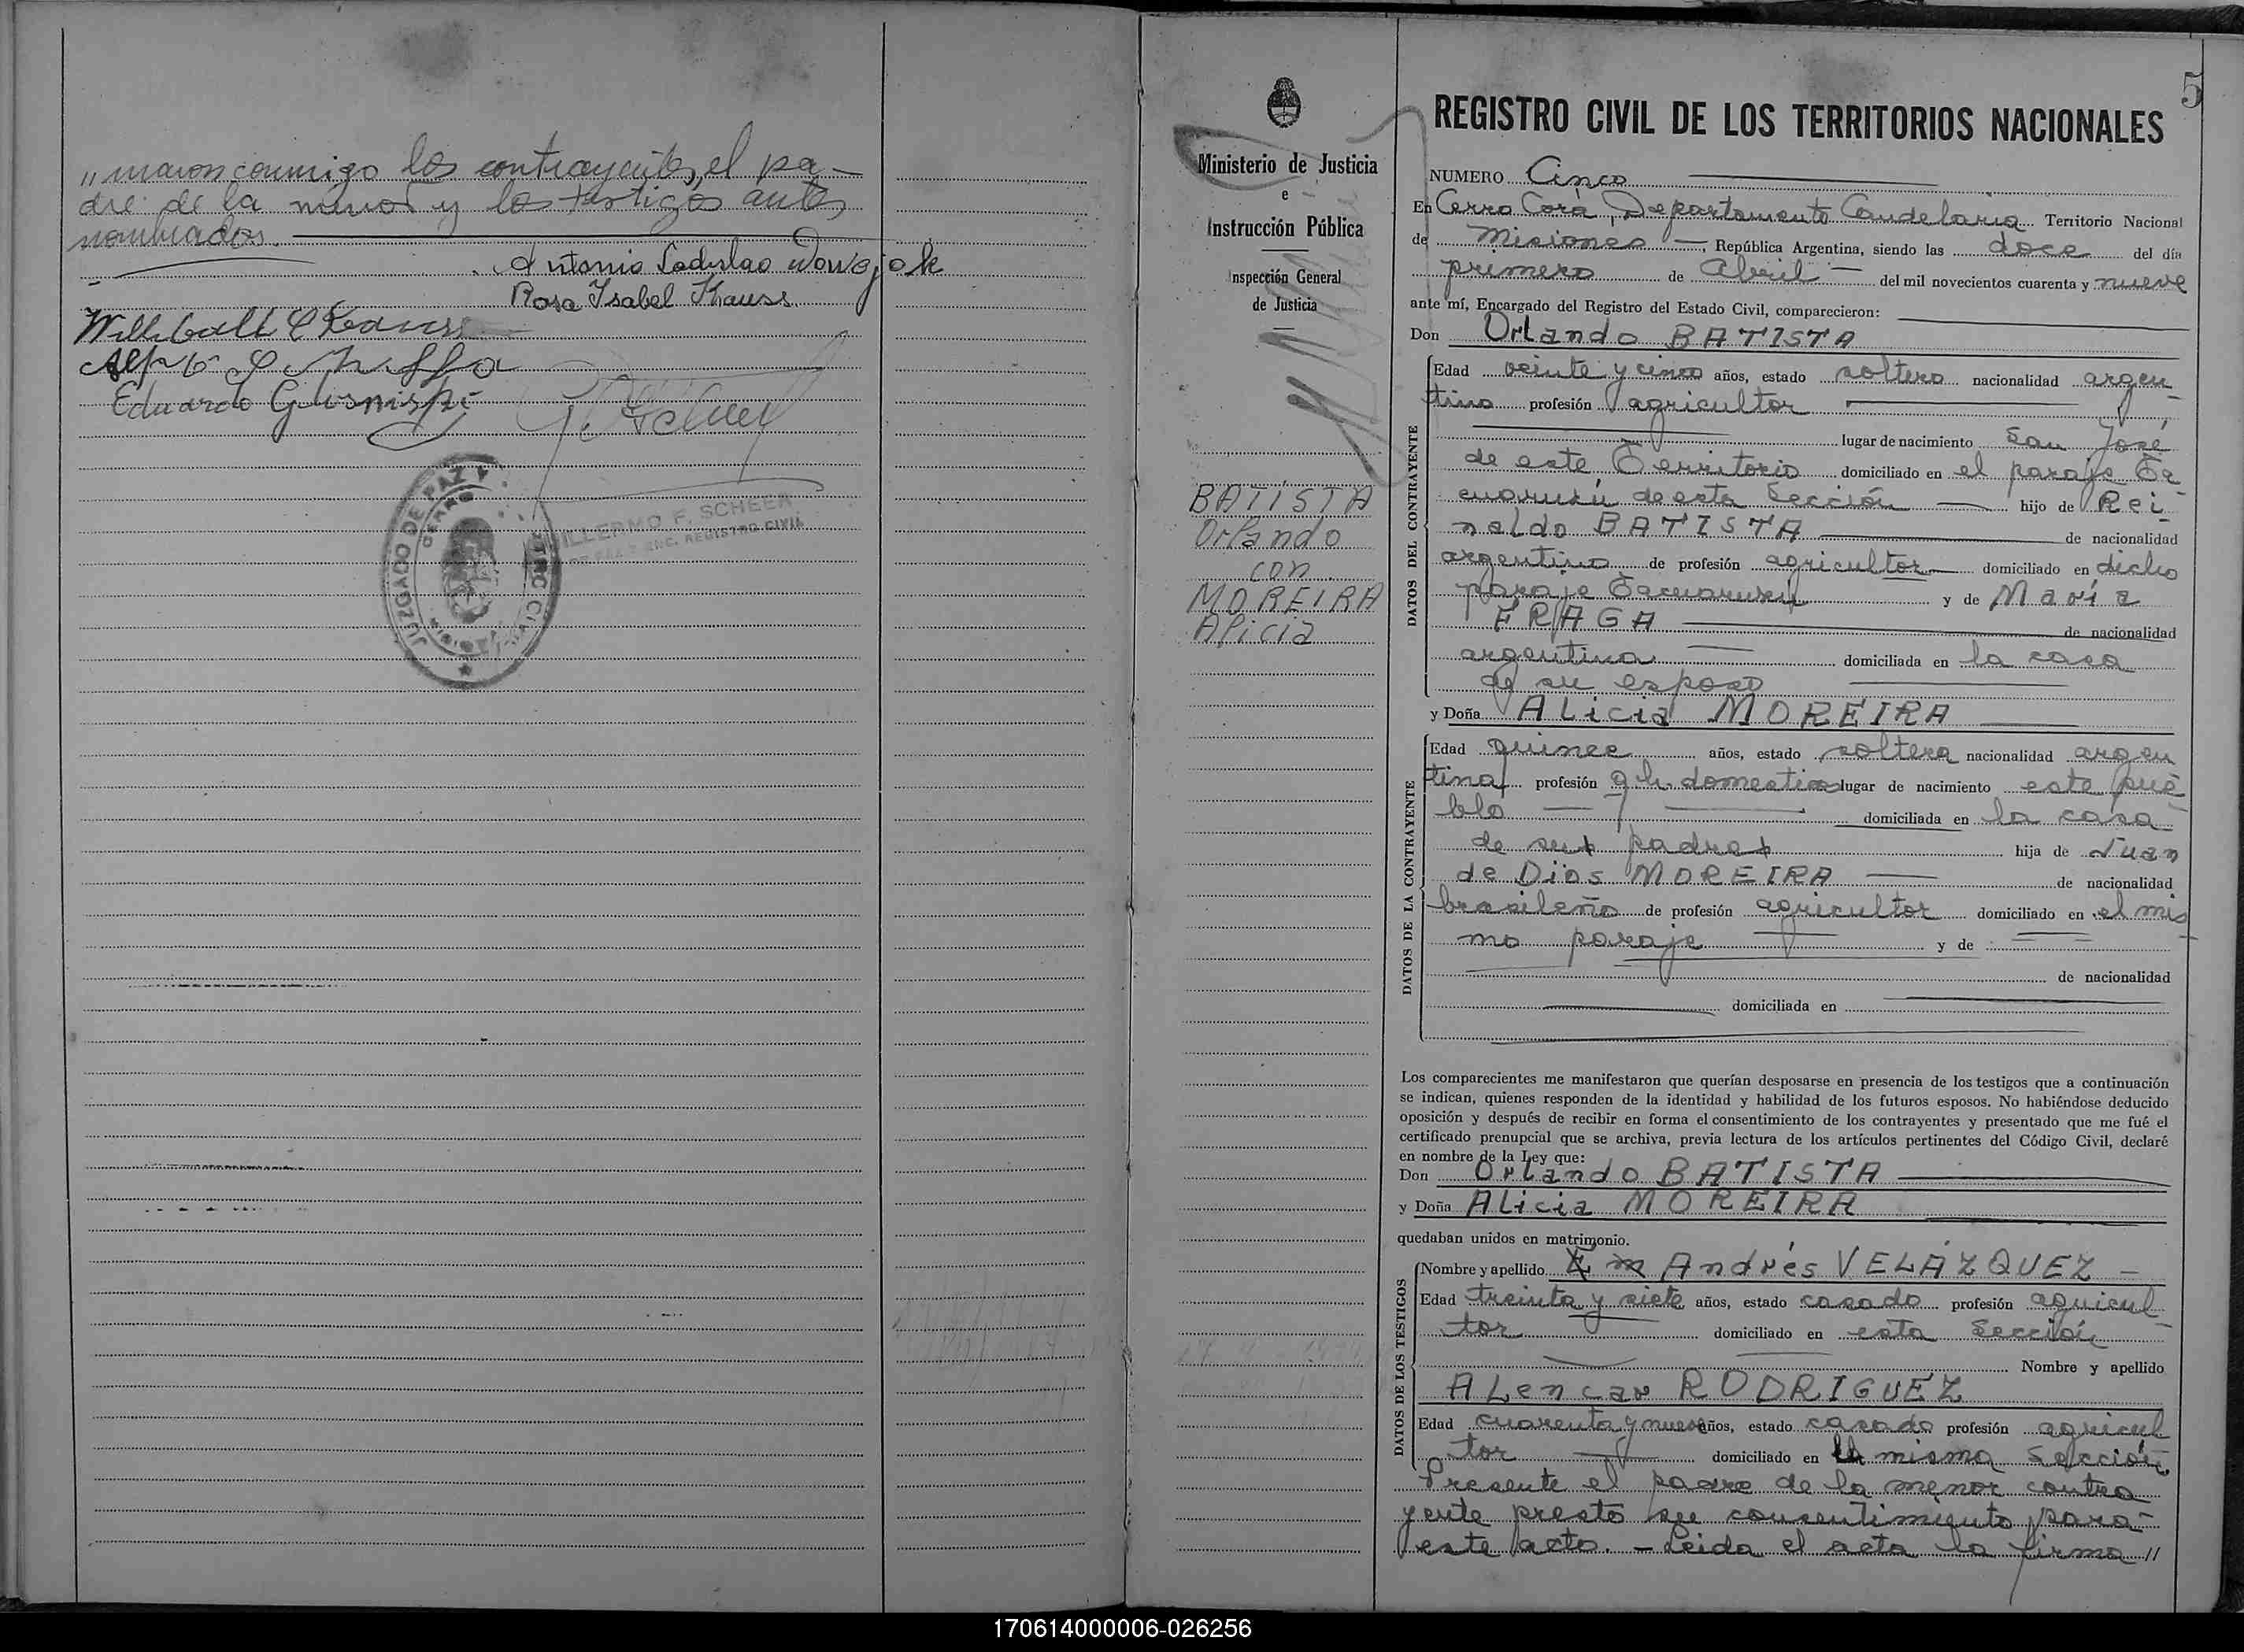 "maron conmigo los contrayentes, el pa-
dre de la menor y los testigos antes
nombrados.
Antonio Ladislao
Rosa Isabel Krauss
Eduardo
JUZGADO DE PAZ
CERRO
GUILLERMO F. SCHEER
JUEZ DE PAZ Y ENC. REGISTRO CIVIL
Ministerio de Justicia
e
Instrucción Pública
Inspección General
de Justicia
BATISTA
Orlando
con
MOREIRA
Alicia
5
REGISTRO CIVIL DE LOS TERRITORIOS NACIONALES
NUMERO Cinco
En Cerro Corá, Departamento Candelaria Territorio Nacional
de Misiones —, República Argentina, siendo las doce del día
primero de Abril — del mil novecientos cuarenta y nueve
ante mí, Encargado del Registro del Estado Civil, comparecieron:
Don Orlando BATISTA
DATOS DEL CONTRAYENTE
Edad veinte y cinco años, estado soltero nacionalidad argen-
tino profesión agricultor
lugar de nacimiento San José
de este Territorio domiciliado en el paraje Ta-
cuarusú de esta Sección — hijo de Rei-
naldo BATISTA de nacionalidad
argentino de profesión agricultor — domiciliado en dicho
paraje Tacuarusú y de María
FRAGA de nacionalidad
argentina domiciliada en la casa
de su esposo
y Doña Alicia MOREIRA
DATOS DE LA CONTRAYENTE
Edad quince años, estado soltera nacionalidad argen
tina profesión q.h. domesticos lugar de nacimiento este pue-
blo domiciliada en la casa
de sus padres hija de Juan
de Dios MOREIRA de nacionalidad
brasileño de profesión agricultor domiciliado en el mis-
mo paraje y de
de nacionalidad
domiciliada en
Los comparecientes me manifestaron que querían desposarse en presencia de los testigos que a continuación
se indican, quienes responden de la identidad y habilidad de los futuros esposos. No habiéndose deducido
oposición y después de recibir en forma el consentimiento de los contrayentes y presentado que me fué el
certificado prenupcial que se archiva, previa lectura de los artículos pertinentes del Código Civil, declaré
en nombre de la Ley que:
Don Orlando BATISTA
y Doña Alicia MOREIRA
quedaban unidos en matrimonio.
DATOS DE LOS TESTIGOS
Nombre y apellido Andrés VELÁZQUEZ —
Edad treinta y siete años, estado casado profesión agricul-
tor domiciliado en esta Sección
Nombre y apellido
Alencar RODRIGUEZ
Edad cuarenta y nueve años, estado casado profesión agricul
tor domiciliado en la misma Sección.
Presente el padre de la menor contra
yente prestó su consentimiento para
este acto. — Leida el acta la firma"
170614000006-026256